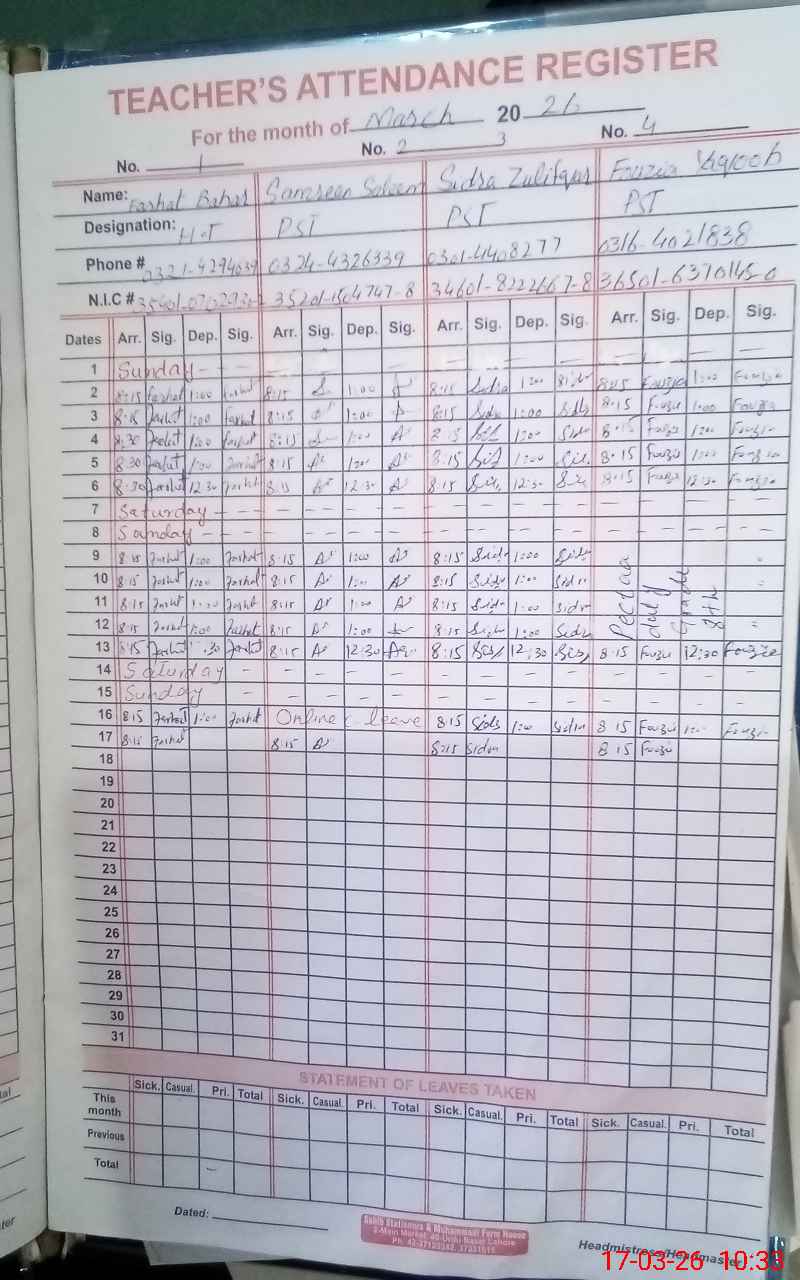 TEACHER'S ATTENDANCE REGISTER
For the month of March 20 26
No. 1 No. 2 3 No. 4
Name: Farhat Bahar Samreen Saleem Sidra Zulifqar Fouzia Yaqoob
Designation: H.T PST PST PST
Phone # 0321-4294639 0324-4326339 0301-4408277 0316-4021838
N.I.C # 35201-1504747-8 34601-8222667-8 36501-6370145-0
Dates Arr. Sig. Dep. Sig. Arr. Sig. Dep. Sig. Arr. Sig. Dep. Sig. Arr. Sig. Dep. Sig.
1 Sunday - - - - - - - - - - - - -
2 8:15 Farhat 1:00 Farhat 8:15 1:00 8:15 Sidra 1:00 Sidra 8:15 Fouzia 1:00 Fouzia
3 8:15 Farhat 1:00 Farhat 8:15 1:00 8:15 Sidra 1:00 Sidra 8:15 Fouzia 1:00 Fouzia
4 8:30 Farhat 1:00 Farhat 8:15 1:00 8:15 1:00 Sidra 8:15 Fouzia 1:00 Fouzia
5 8:30 Farhat 1:00 Farhat 8:15 1:00 8:15 1:00 8:15 Fouzia 1:00 Fouzia
6 8:30 Farhat 12:30 Farhat 8:15 12:30 8:15 12:30 8:15 Fouzia 12:30 Fouzia
7 Saturday - - - - - - - - - - - - -
8 Sunday - - - - - - - - - - - - -
9 8:15 Farhat 1:00 Farhat 8:15 1:00 8:15 Sidr 1:00 Sidr
10 8:15 Farhat 1:00 Farhat 8:15 1:00 8:15 Sidr 1:00 Sidr
11 8:15 Farhat 1:00 Farhat 8:15 1:00 8:15 Sidr 1:00 Sidr
12 8:15 Farhat 1:00 Farhat 8:15 1:00 8:15 Sidr 1:00 Sidr
Pectaa duty Grade 8th
13 8:15 Farhat 12:30 Farhat 8:15 12:30 8:15 12:30 8:15 Fouzia 12:30 Fouzia
14 Saturday - - - - - - - - - - - - -
15 Sunday - - - - - - - - - - - - -
16 8:15 Farhat 1:00 Farhat Online leave 8:15 Sidr 1:00 Sidr 8:15 Fouzia 1:00 Fouzia
17 8:15 Farhat 8:15 8:15 Sidra 8:15 Fouzia
18
19
20
21
22
23
24
25
26
27
28
29
30
31
STATEMENT OF LEAVES TAKEN
Sick. Casual. Pri. Total Sick. Casual. Pri. Total Sick. Casual. Pri. Total Sick. Casual. Pri. Total
This month
Previous
Total
Dated:
Headmistress/Headmaster
17-03-26 10:33